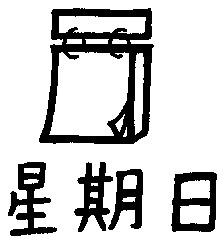 星期日